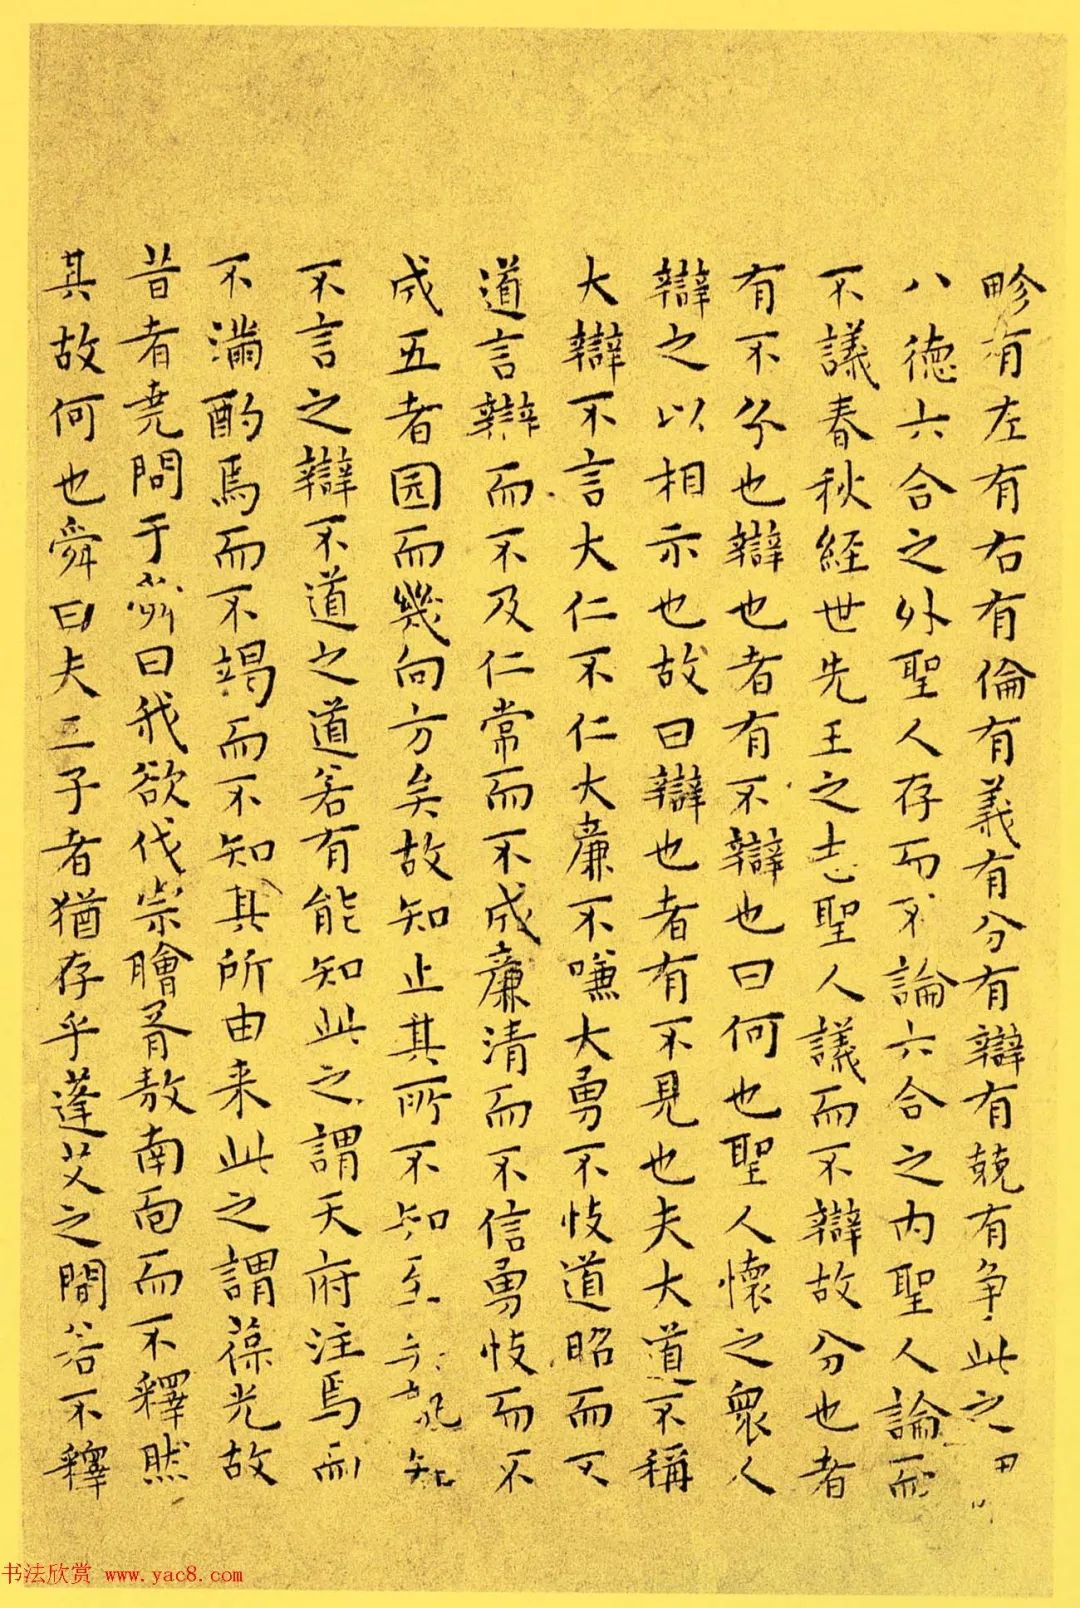 畛有左有右有倫有義有分有辯有競有争此之
八德六合之外聖人存而不論六合之内聖人論而
不議春秋經世先王之志聖人議而不辯故分也者
有不分也辯也者有不辯也曰何也聖人懷之衆人
辯之以相示也故曰辯也者有不見也夫大道不稱
大辯不言大仁不仁大廉不嗛大勇不忮道昭而不
道言辯而不及仁常而不成廉清而不信勇忮而不
成五者园而幾向方矣故知止其所不知至矣孰知
不言之辯不道之道若有能知此之謂天府注焉而
不滿酌焉而不竭而不知其所由来此之謂葆光故
昔者堯問于舜曰我欲伐宗膾胥敖南面而不釋然
其故何也舜曰夫三子者猶存乎蓬艾之間若不釋
书法欣赏 www.yac8.com